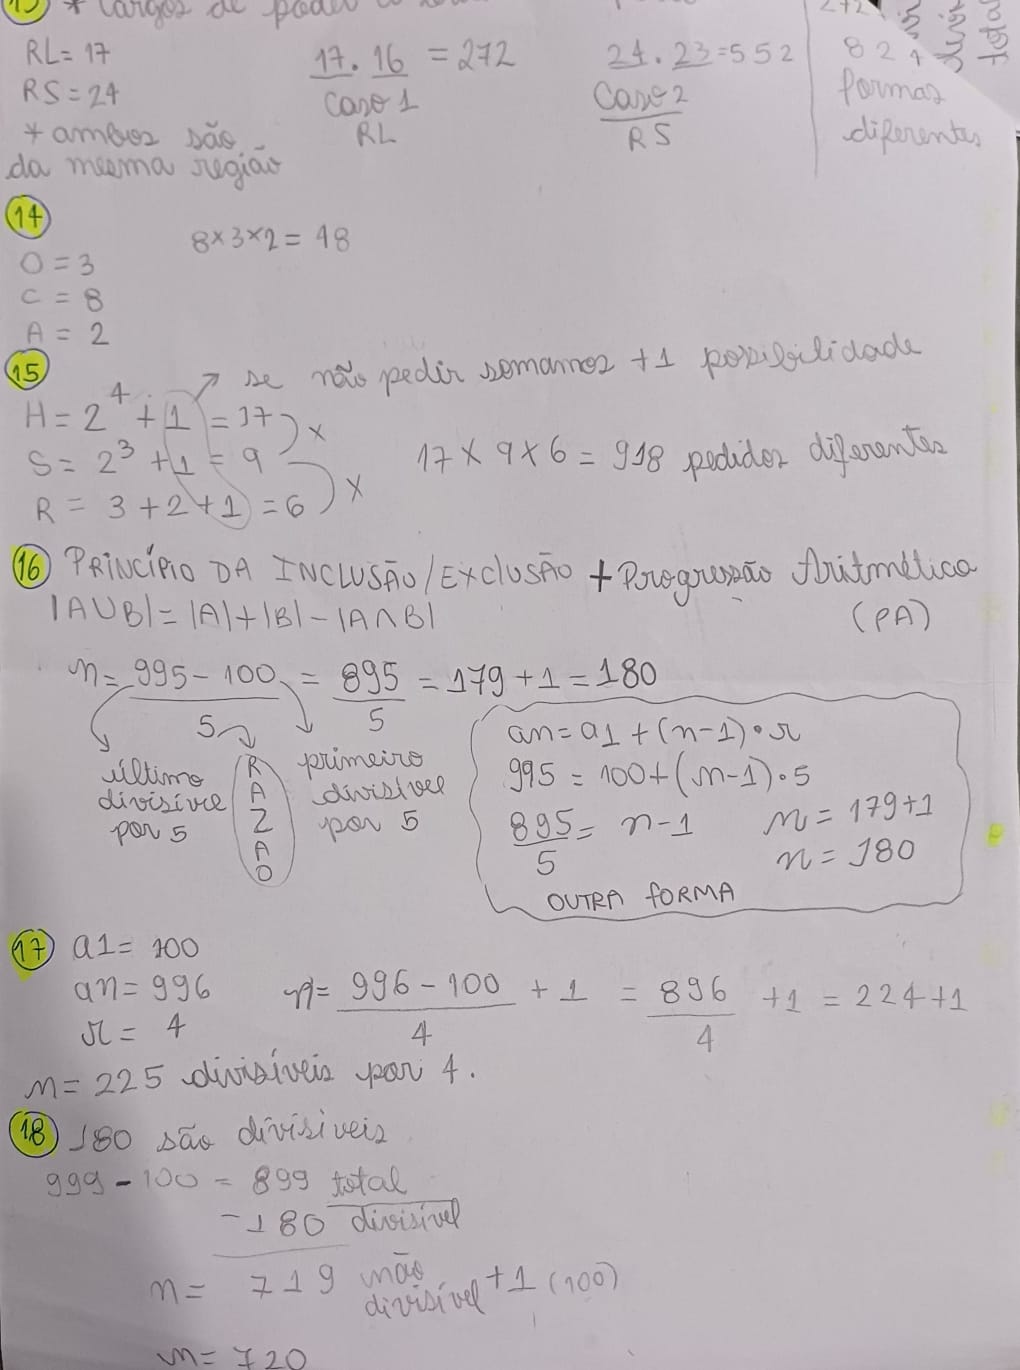 13 * Cargos de poder
RL = 17
RS = 24
* ambos são
da mesma região
17 . 16 = 272
Caso 1
RL
24 . 23 = 552
Caso 2
RS
272
824
formas
diferentes
14
8 × 3 × 2 = 48
O = 3
C = 8
A = 2
15
se não pedir somamos +1 possibilidade
H = 2^4 + 1 = 17
S = 2^3 + 1 = 9
R = 3 + 2 + 1 = 6
×
×
17 × 9 × 6 = 918 pedidos diferentes
16 PRINCÍPIO DA INCLUSÃO/EXCLUSÃO + Progressão Aritmética
(PA)
|A∪B| = |A| + |B| - |A∩B|
n = 995 - 100 / 5 = 895 / 5 = 179 + 1 = 180
último
divisível
por 5
RAZAO
primeiro
divisível
por 5
an = a1 + (n-1) • r
995 = 100 + (n-1) • 5
895 / 5 = n-1
n = 179 + 1
n = 180
OUTRA FORMA
17 a1 = 100
an = 996
r = 4
n = 996 - 100 / 4 + 1 = 896 / 4 + 1 = 224 + 1
n = 225 divisíveis por 4.
18 180 são divisíveis
999 - 100 = 899 total
- 180 divisível
n = 719 não divisível + 1 (100)
n = 720